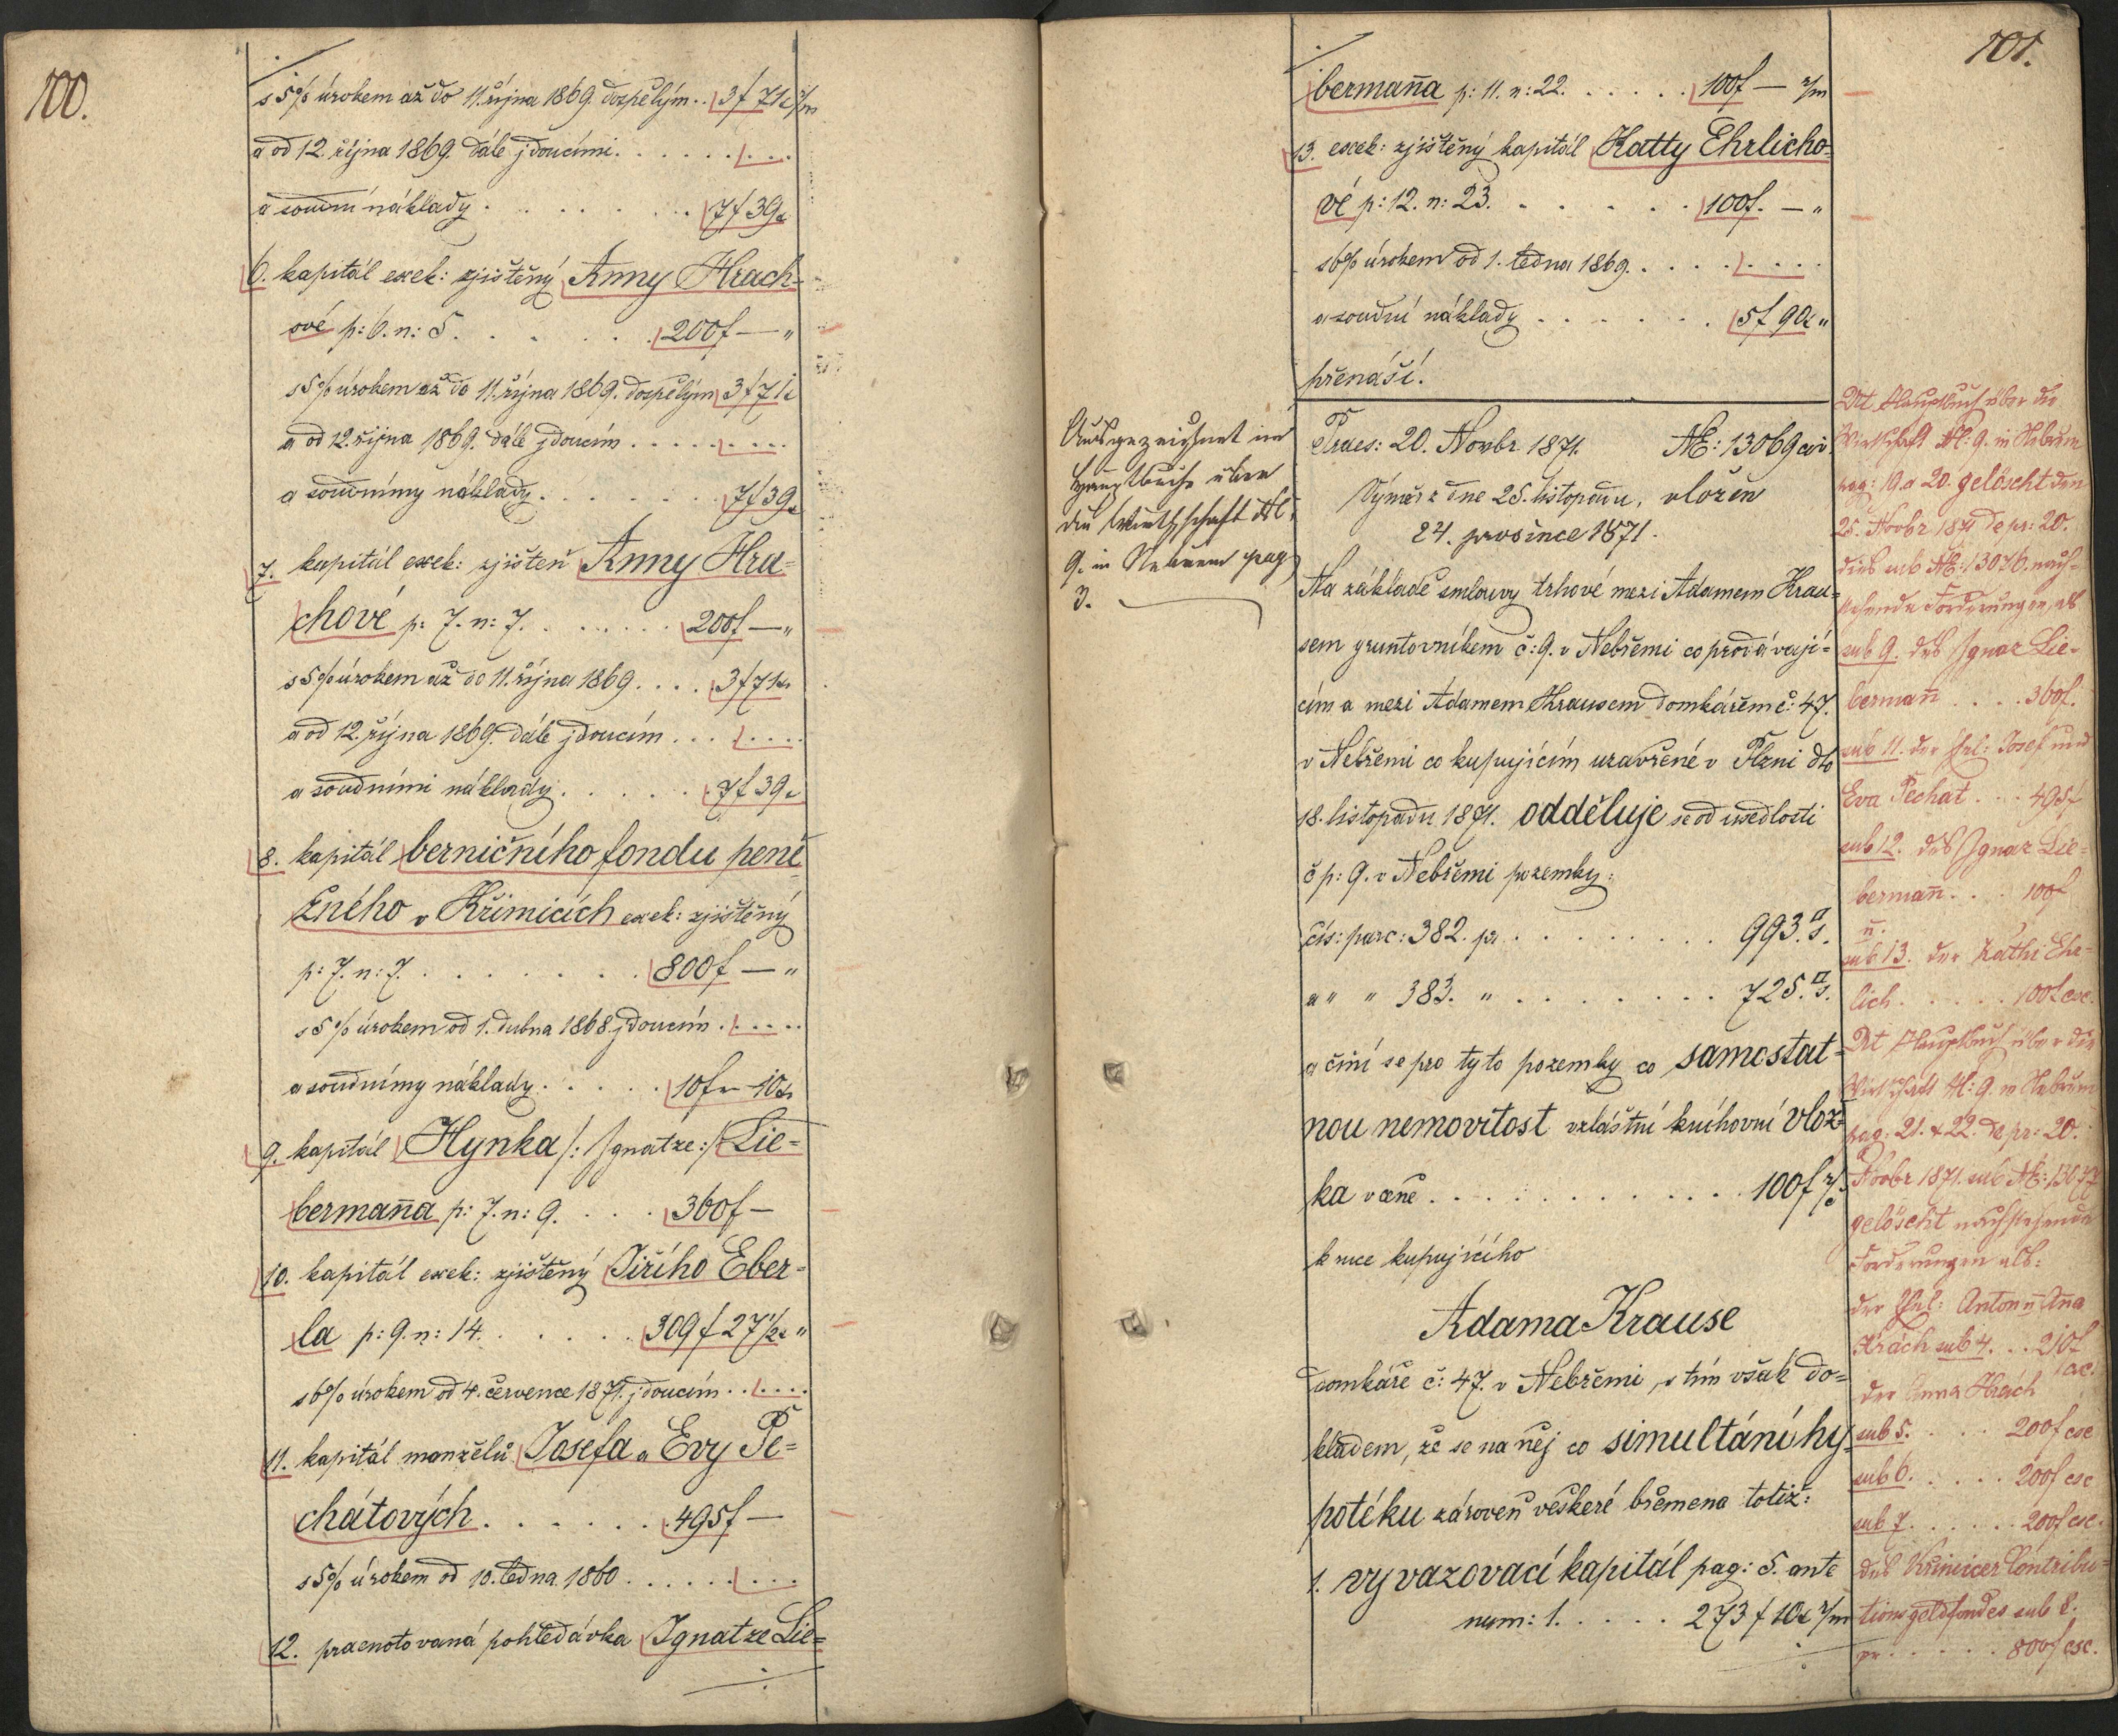 100.
s 5% úrokem až do 11. října 1869. dospělým .. 3 f 71 x r/m
a od 12. října 1869. dále jdoucími . . . . . . . . .
a soudní náklady . . . . . . . 7 f 39 x
6. kapitál exek: zjištěný Anny Hrach-
ové p: 6. n: 5. . . . . . 200 f — "
s 5% úrokem až do 11. října 1869. dospělým 3 f 71 x
a od 12. října 1869. dále jdoucím . . . . . . . .
a soudnímy náklady . . . . . . 7 f 39 x
7. kapitál exek: zjištěn Anny Hra=
chové p: 7. n: 7. . . . . . . 200 f — "
s 5% úrokem až do 11. října 1869 . . . . 3 f 71 x
a od 12. října 1869. dále jdoucím . . . . . . .
a soudními náklady . . . . . . 7 f 39 x
8. kapitál berničního fondu peně
žného v Křimicích exek: zjištěný
p: 7. n: 7. . . . . . . . 800 f — "
s 5% úrokem od 1. dubna 1868. jdoucím . . . . .
a soudnímy náklady . . . . . 10 f — 10 x
9. kapitál Hynka /: Ignatze :/ Lie=
bermaña p: 7. n: 9. . . . 360 f —
10. kapitál exek: zjištěný Jiřího Eber=
la p: 9. n: 14. . . . . . 309 f 27 1/2 x "
s 6% úrokem od 4. července 1871. jdoucím . . . . .
11. kapitál manželů Josefa a Evy Pe=
chátových . . . . . . . 495 f —
s 5% úrokem od 10. ledna 1860 . . . . . . . .
12. praenotovaná pohledávka Ignatze Lie=
101.
bermaña p: 11. n: 22. . . . . . 100 f — r/m
13. exek: zjištěný kapitál Katty Ehrlicho-
vé p: 12. n: 23. . . . . . 100 f. — "
s 6% úrokem od 1. ledna 1869. . . . . . . . .
a soudní náklady . . . . . . . 5 f 90 x "
přenáší.
Ausgezeichnet im
Hauptbuche über
die Wirthschaft N:
9. in Nebřem pag
3.
Praes: 20. Novbr 1871. NE: 13069 civ.
Výměr z dne 25. listopadu, vložen
24. prosince 1871.
Na základě smlouvy trhové mezi Adamem Krau=
sem gruntovníkem č: 9. v Nebřemi co prodávají=
cím a mezi Adamem Krausem domkářem č: 47.
v Nebřemi co kupujícím uzavřené v Plzni dto
18. listopadu 1871. odděluje se od usedlosti
č p: 9. v Nebřemi pozemky:
čís: parc: 382. pr . . . . . . . . 993. □ s.
a " " 383. " . . . . . . . . 725. □ s.
a činí se pro tyto pozemky co samostat=
nou nemovitost zvláštní knihovní vlož=
ka v ceně . . . . . . . . . . . . 100 f r/č
k ruce kupujícího
Adama Krause
domkáře č: 47. v Nebřemi, s tím však do=
kladem, že se na něj co simultání hy=
potéku zároveň veškeré břemena totiž:
1. vyvazovací kapitál pag: 5. ante
num: 1. . . . . . 273 f 10 x r/m
Ut Hauptbuch über die
Wirthschaft N: 9. in Nebřem
pag: 19. a 20. gelöscht den
25. Novbr 1871 de pr: 20.
dies sub NE: 13076. nach-
stehende Forderungen, als
sub 9. des Ignaz Lie-
bermañ . . . . 360 f.
sub 11. der Ehel: Josef und
Eva Pechat . . . 495 f
sub 12. des Ignaz Lie=
bermañ . . . 100 f
u.
sub 13. der Kathi Ehr-
lich . . . . . 100 f csc.
Ut Hauptbuch über die
Wirthschaft N: 9. in Nebřem
pag: 21. & 22. de pr: 20.
Novbr 1871. sub NE: 13077
gelöscht nachstehende
Forderungen als:
der Ehel: Anton u Aña
Hrách sub 4. . . 210 f
csc.
der Anna Hrách
sub 5. . . . 200 f csc
sub 6. . . . . 200 f csc
sub 7. . . . . . 200 f csc.
des Křimicer Contribu=
tionsgeldfondes sub 8.
pr . . . . . 800 f csc.